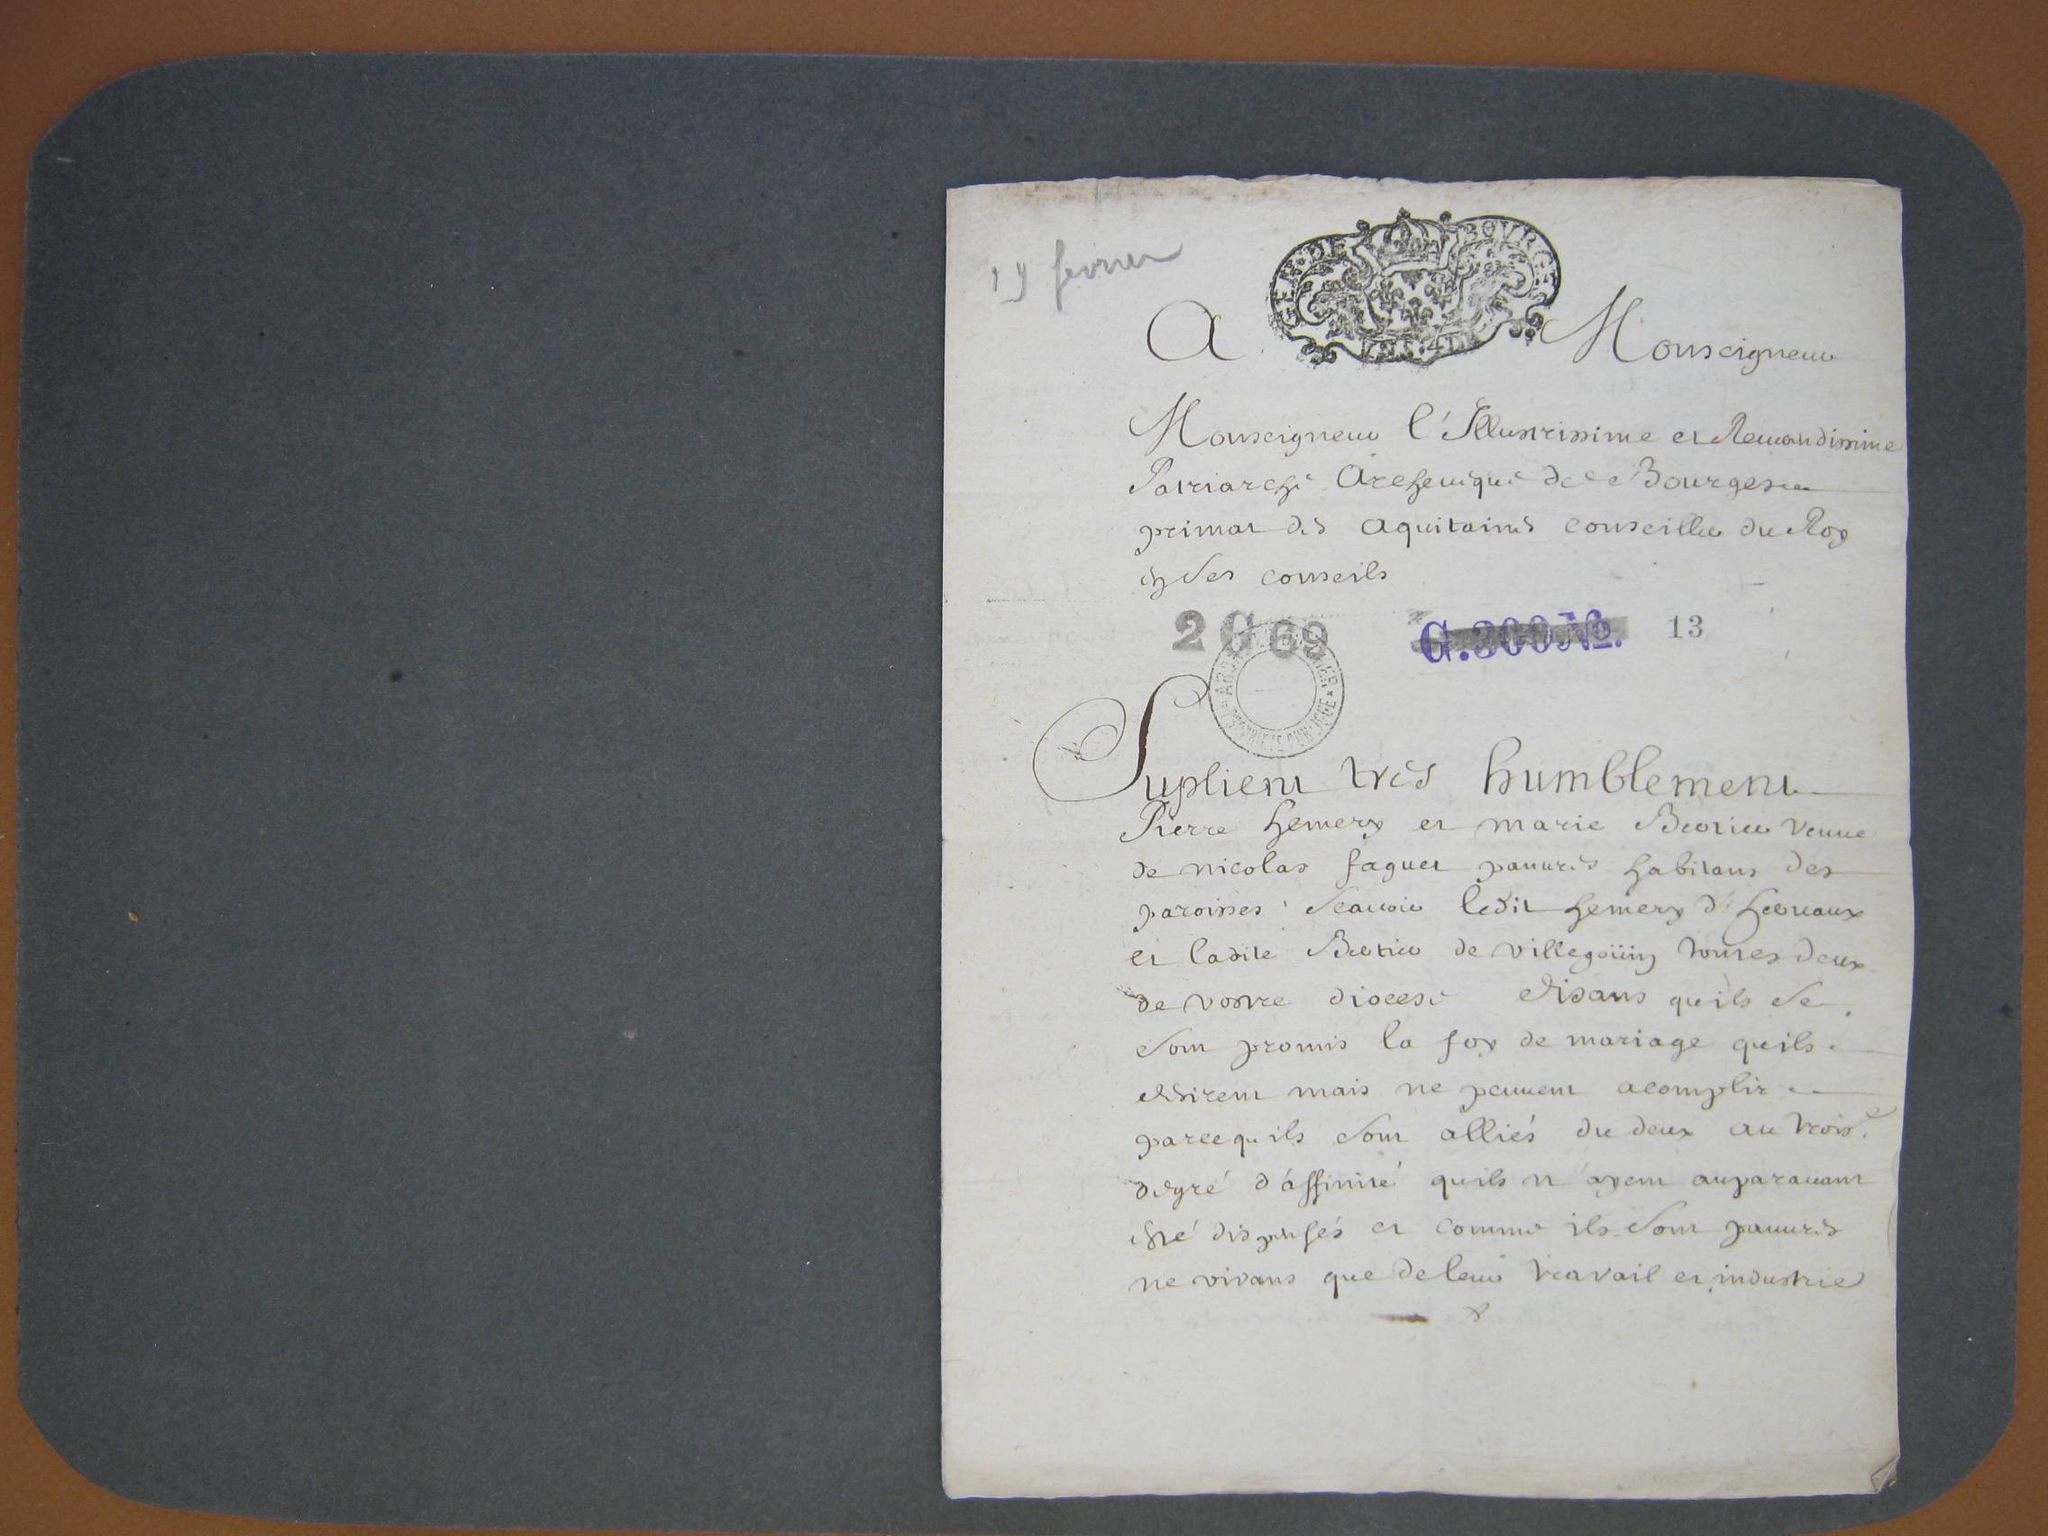 19 fevrier
GEN. DE BOURGES
A Monseigneur
Monseigneur l'Illustrissime et Reverendissime
Patriarche Archevéque de Bourges
primat des aquitaines conseiller du Roy
en ses conseils
2 G 69 G.300 No. 13
Suplient très humblement
Pierre hemery et marie veuue
de nicolas faguet pauures habitans des
paroisses scauoir ledit hemery d'heruaux
et ladite de villegoüin toutes deux
de vostre diocese disans quils se
sont promis la foy de mariage quils
desirent mais ne peuuent acomplir
parcequ'ils sont alliés du deux au trois.e
degré d'affinité quils n'ayent auparauant
esté dispensés et comme ils sont pauures
ne vivans que de leur travail et industrie